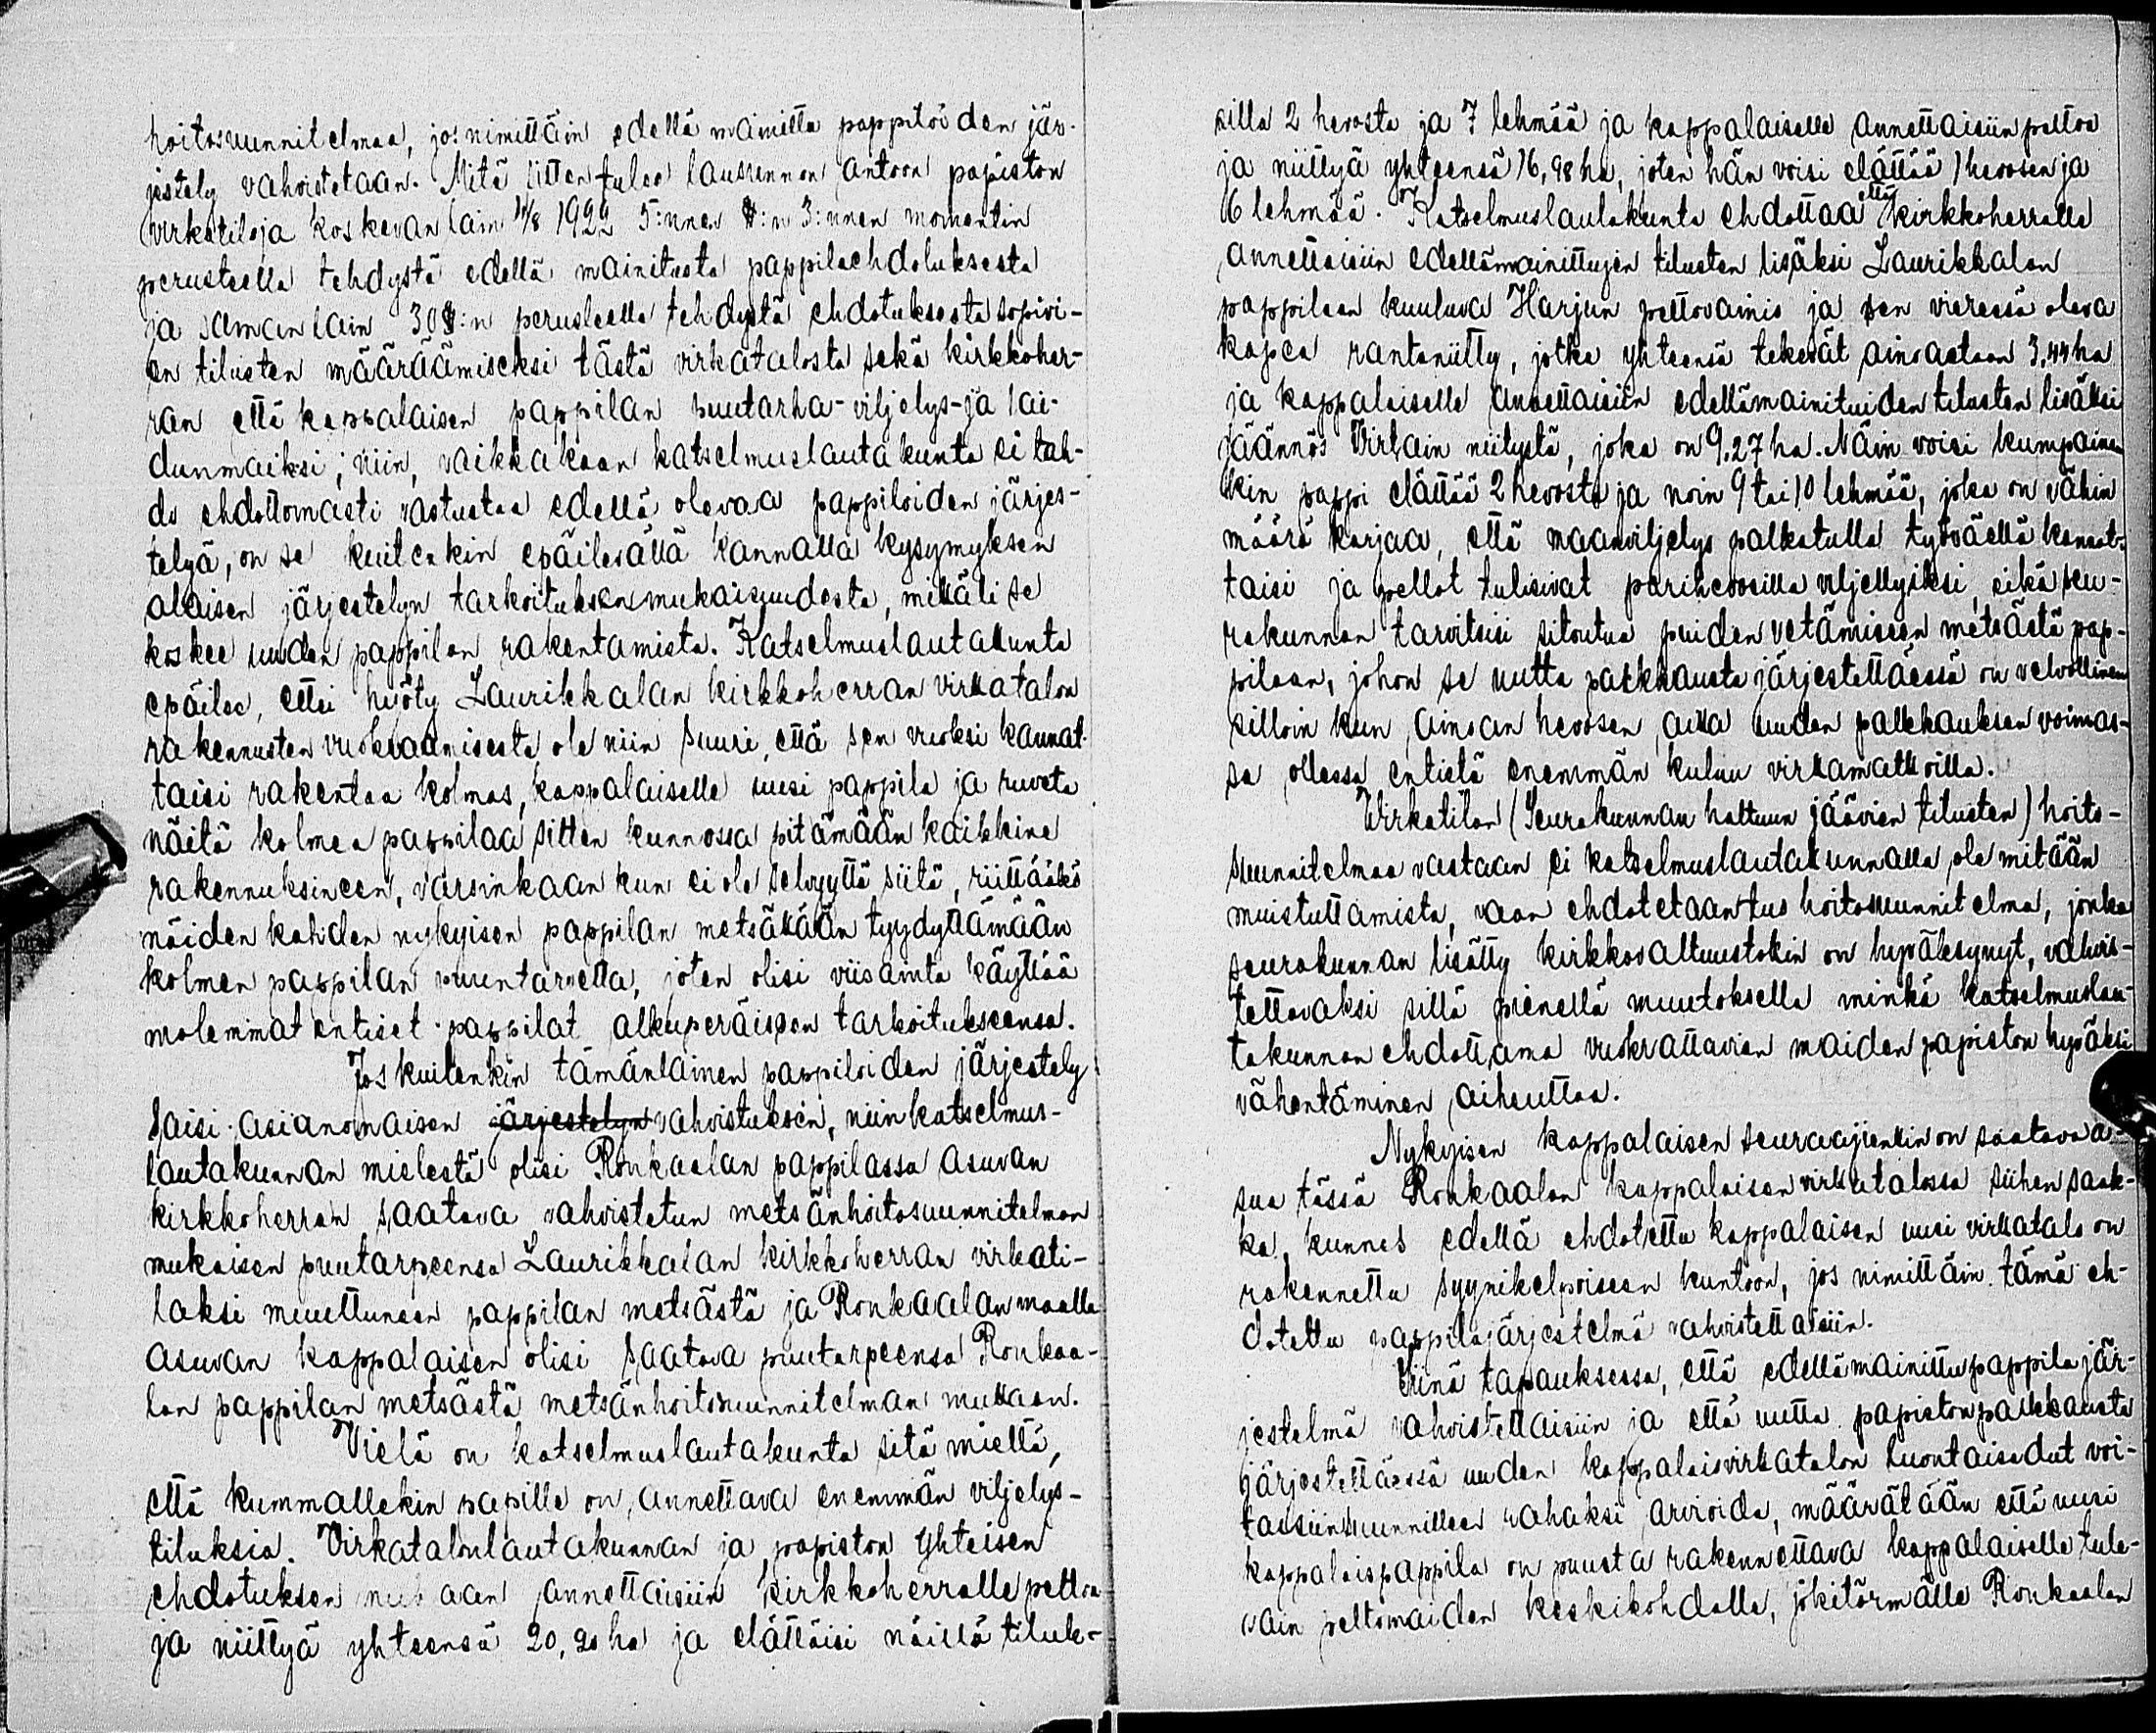 hoitosuunnitelmaa, jos nimittäin edellä mainittu pappiloiden jär-
jestely vahvistetaan. Mitä sitten tulee lausunnon antoon papiston
virkatiloja koskevan lain 11/8 1922 5:nnen §:n 3:nnen momentin
perusteella tehdystä edellä mainitusta pappilaehdotuksesta
ja saman lain 30 §:n perusteella tehdystä ehdotuksesta sopivi-
en tilusten määräämiseksi tästä virkatalosta sekä kirkkoher-
ran että kappalaisen pappilan puutarha-viljelys-ja lai-
dunmaiksi; niin, vaikkakaan katselmuslautakunta ei tah-
do ehdottomasti vastustaa edellä olevaa pappiloiden järjes-
telyä, on se kuitenkin epäilevällä kannalla kysymyksen
alaisen järjestelyn tarkoituksenmukaisuudesta, mikäli se
koskee uuden pappilan rakentamista. Katselmuslautakunta
epäilee, ettei hyöty Laurikkalan kirkkoherran virkatalon
rakennusten vuokraamisesta ole niin suuri, että sen vuoksi kannat-
taisi rakentaa kolmas, kappalaiselle uusi pappila ja ruveta
näitä kolmea pappilaa sitten kunnossa pitämään kaikkine
rakennuksineen, varsinkaan kun ei ole selvyyttä siitä, riittääkö
näiden kahden nykyisen pappilan metsäkään tyydyttämään
kolmen pappilan puuntarvetta, joten olisi viisainta käyttää
molemmat entiset pappilat alkuperäiseen tarkoitukseensa.
Jos kuitenkin tämänlainen pappiloiden järjestely
saisi asianomaisen järjestelyn vahvistuksen, niin katselmus-
lautakunnan mielestä olisi Ronkaalan pappilassa asuvan
kirkkoherran saatava vahvistetun metsänhoitosuunnitelman
mukaisen puutarpeensa Laurikkalan kirkkoherran virkati-
laksi muuttuneen pappilan metsästä ja Ronkaalan maalla
asuvan kappalaisen olisi saatava puutarpeensa Ronkaa-
lan pappilan metsästä metsänhoitosuunnitelman mukaan.
Vielä on katselmuslautakunta sitä mieltä,
että kummallekin papille on annettava enemmän viljelys-
tiluksia. Virkatalolautakunnan ja papiston yhteisen
ehdotuksen mukaan annettaisiin kirkkoherralle peltoa
ja niittyä yhteensä 20,20 ha ja elättäisi näillä tiluk-
silla 2 hevosta ja 7 lehmää ja kappalaiselle annettaisiin peltoa
ja niittyä yhteensä 16,98 ha, joten hän voisi elättää 1 hevosen ja
6 lehmää. Katselmuslautakunta ehdottaa että kirkkoherralle
annettaisiin edellämainittujen tilusten lisäksi Laurikkalan
pappilaan kuuluva Harjun peltovainio ja sen vieressä oleva
kapea rantaniitty, jotka yhteensä tekevät ainoastaan 3,44 ha
ja kappalaiselle annettaisiin edellämainituiden tilusten lisäksi
jäännös Virtain niitystä, joka on 9,27 ha. Näin voisi kumpainen
kin pappi elättää 2 hevosta ja noin 9 tai 10 lehmää, joka on vähin
määrä karjaa, että maanviljelys palkatulla työväellä kannat-
taisi ja pellot tulisivat parihevosilla viljellyiksi, eikä seu-
rakunnan tarvitsisi sitoutua puiden vetämiseen metsästä pap-
pilaan, johon se uutta palkkausta järjestettäessä on velvollinen
silloin kun ainoan hevosen aika uuden palkkauksen voimas-
sa ollessa entistä enemmän kuluu virkamatkoilla.
Virkatilan (Seurakunnan haltuun jäävien tilusten) hoito-
suunnitelmaa vastaan ei katselmuslautakunnalla ole mitään
muistuttamista, vaan ehdotetaan tuo hoitosuunnitelma, jonka
seurakunnan lisätty kirkkovaltuustokin on hyväksynyt, vahvis-
tettavaksi sillä pienellä muutoksella minkä katselmuslau-
takunnan ehdottama vuokrattavien maiden papiston hyväksi
vähentäminen aiheuttaa.
Nykyisen kappalaisen seuraajienkin on saatava a-
sua tässä Ronkaalan kappalaisen virkatalossa siihen saak-
ka, kunnes edellä ehdotettu kappalaisen uusi virkatalo on
rakennettu syynikelpoiseen kuntoon, jos nimittäin tämä eh-
dotettu pappilajärjestelmä vahvistettaisiin.
Siinä tapauksessa, että edellämainittu pappilajär-
jestelmä vahvistettaisiin ja että uutta papiston palkkausta
järjestettäessä uuden kappalaisvirkatalon luontaisedut voi-
taisiin suunnilleen rahaksi arvioida, määrätään että uusi
kappalaispappila on puusta rakennettava kappalaiselle tule-
vain peltomaiden keskikohdalle, jokitörmälle Ronkaalan